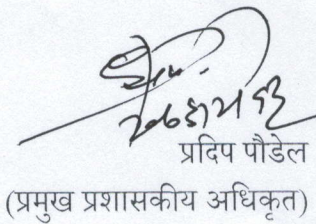 प्रदिप पौडेल
(प्रमुख प्रशासकीय अधिकृत)